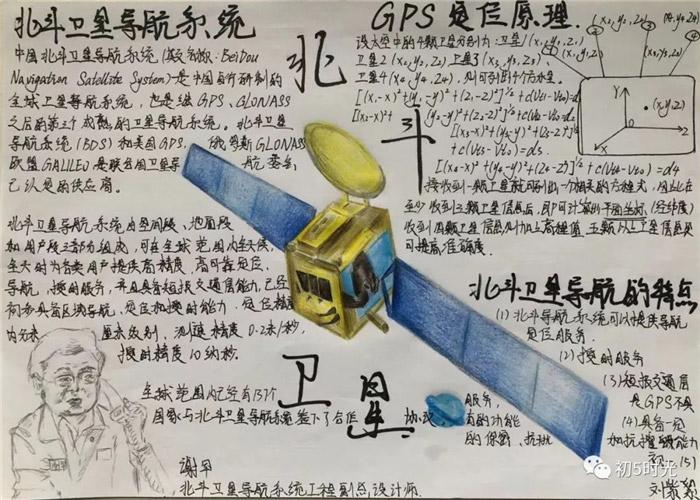 北斗卫星导航系统
中国北斗卫星导航系统(英文名称:BeiDou
Navigation Satellite System)是中国自行研制的
全球卫星导航系统,也是继GPS、GLONASS
之后的第三个成熟的卫星导航系统。北斗卫星
导航系统(BDS)和美国GPS、俄罗斯GLONASS
欧盟GALILEO是联合国卫星导航委员会
已认定的供应商。
北斗卫星导航系统由空间段、地面段
和用户段三部分组成,可在全球范围内全天候、
全天时为各类用户提供高精度、高可靠定位、
导航、授时服务,并且具备短报文通信能力,已经
初步具备区域导航、定位和授时能力,定位精度
为分米、厘米级别,测速精度0.2米/秒,
授时精度10纳秒.
全球范围内已经有137个
国家与北斗卫星导航系统签下了合作协议
谢军
北斗卫星导航系统工程副总设计师.
北
斗
卫
星
GPS定位原理.
设太空中的4颗卫星分别为:卫星1(x₁,y₁,z₁)
卫星2(x₂,y₂,z₂)卫星3(x₃,y₃,z₃)
卫星4(x₄,y₄,z₄),则可引出4个方程.
接收到一颗卫星就可列出一个相关的方程式,因此在
至少收到三颗卫星信息后,即可计算出平面坐标(经纬度)
收到四颗卫星信息则加上高程值,五颗以上卫星信息更
可提高准确度.
Y
X
(x,y,z)
北斗卫星导航的特点
(1)北斗导航系统可以提供导航
定位服务.
(2)授时服务
(3)短报文通信
服务,
是GPS不具
有的功能
(4)具备一定
的保密、抗扰
和抗摧毁能力
初5时光